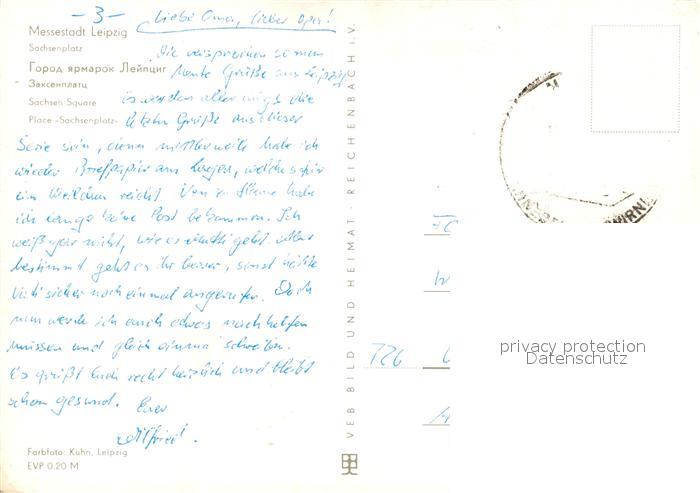 - 3 -
Liebe Oma, lieber Opa!
Messestadt Leipzig
Sachsenplatz
Город ярмарок Лейпциг
Заксенплатц
Sachsen Square
Place »Sachsenplatz«
Die versprochenen
heute Grüße aus Leipzig
es werden allerdings die
letzten Grüße aus dieser
Serie sein, denn mittlerweile habe ich
wieder Briefpapier am Lager, welches für
ein Weilchen reicht. Von zu Hause habe
ich lange keine Post bekommen. Ich
weiß gar nicht, wie es Mutti geht. Aber
bestimmt geht es ihr besser, sonst hätte
Vati sicher noch einmal angerufen. Doch
nun werde ich auch etwas nachhelfen
müssen und gleich einmal schreiben.
Es grüßt Euch recht herzlich und bleibt
schön gesund. Euer
Alfried.
Farbfoto: Kuhn, Leipzig
EVP 0,20 M
VEB BILD UND HEIMAT · REICHENBACH i. V.
726
privacy protection
Datenschutz